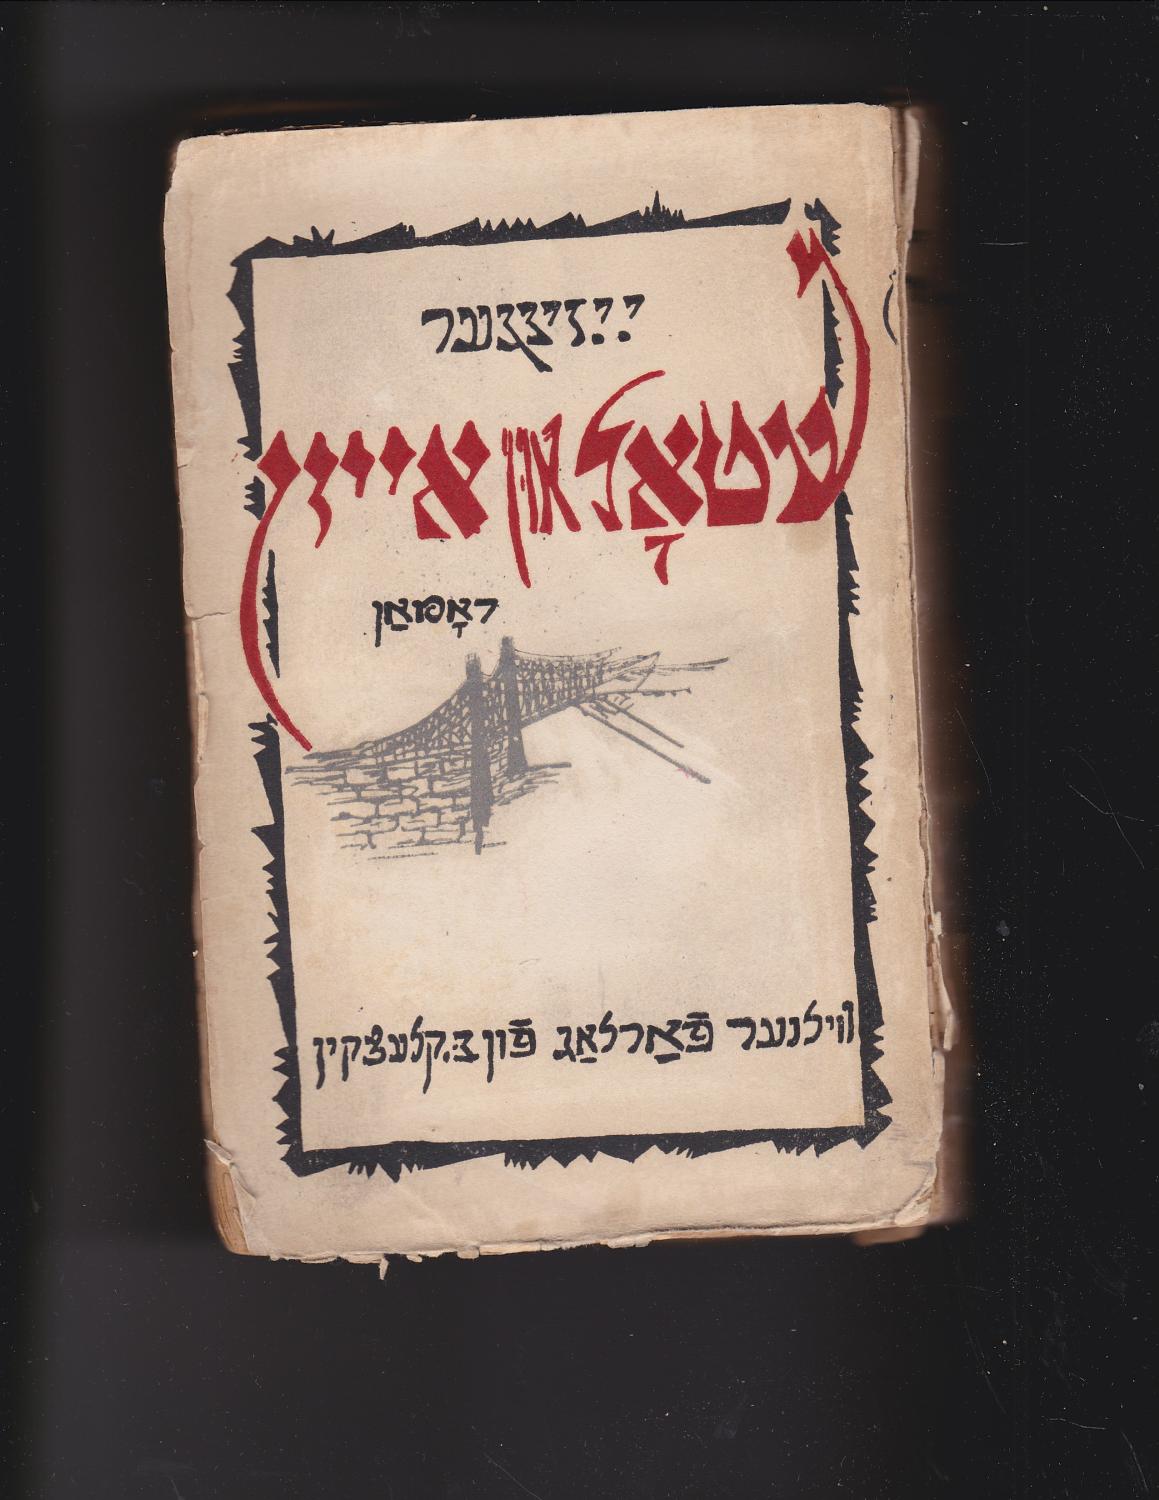 י.י. זינגער
שטאָל און אייזן
ראָמאַן
ווילנער פֿאַרלאַג פֿון ב. קלעצקין